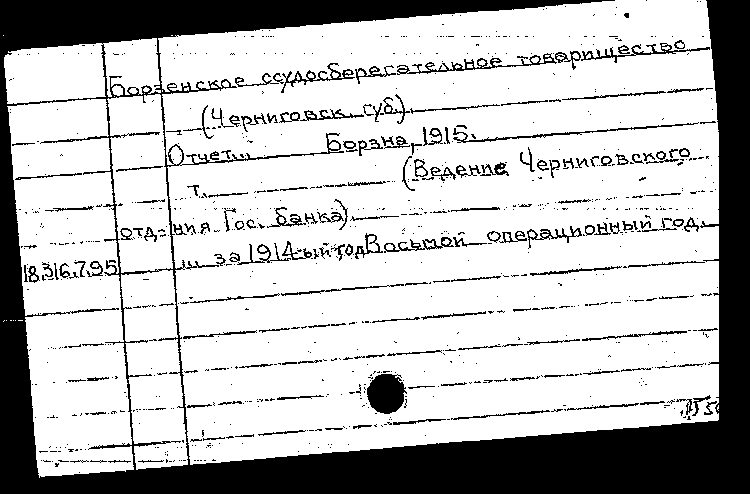 Борзенское ссудосберегательное товарищество
(Черниговск. губ).
Отчет... Борзна, 1915.
т. (Ведение Черниговского
отд-ния Гос. банка).
18.316.7.95 ... за 1914-ый год Восьмой операционный год.